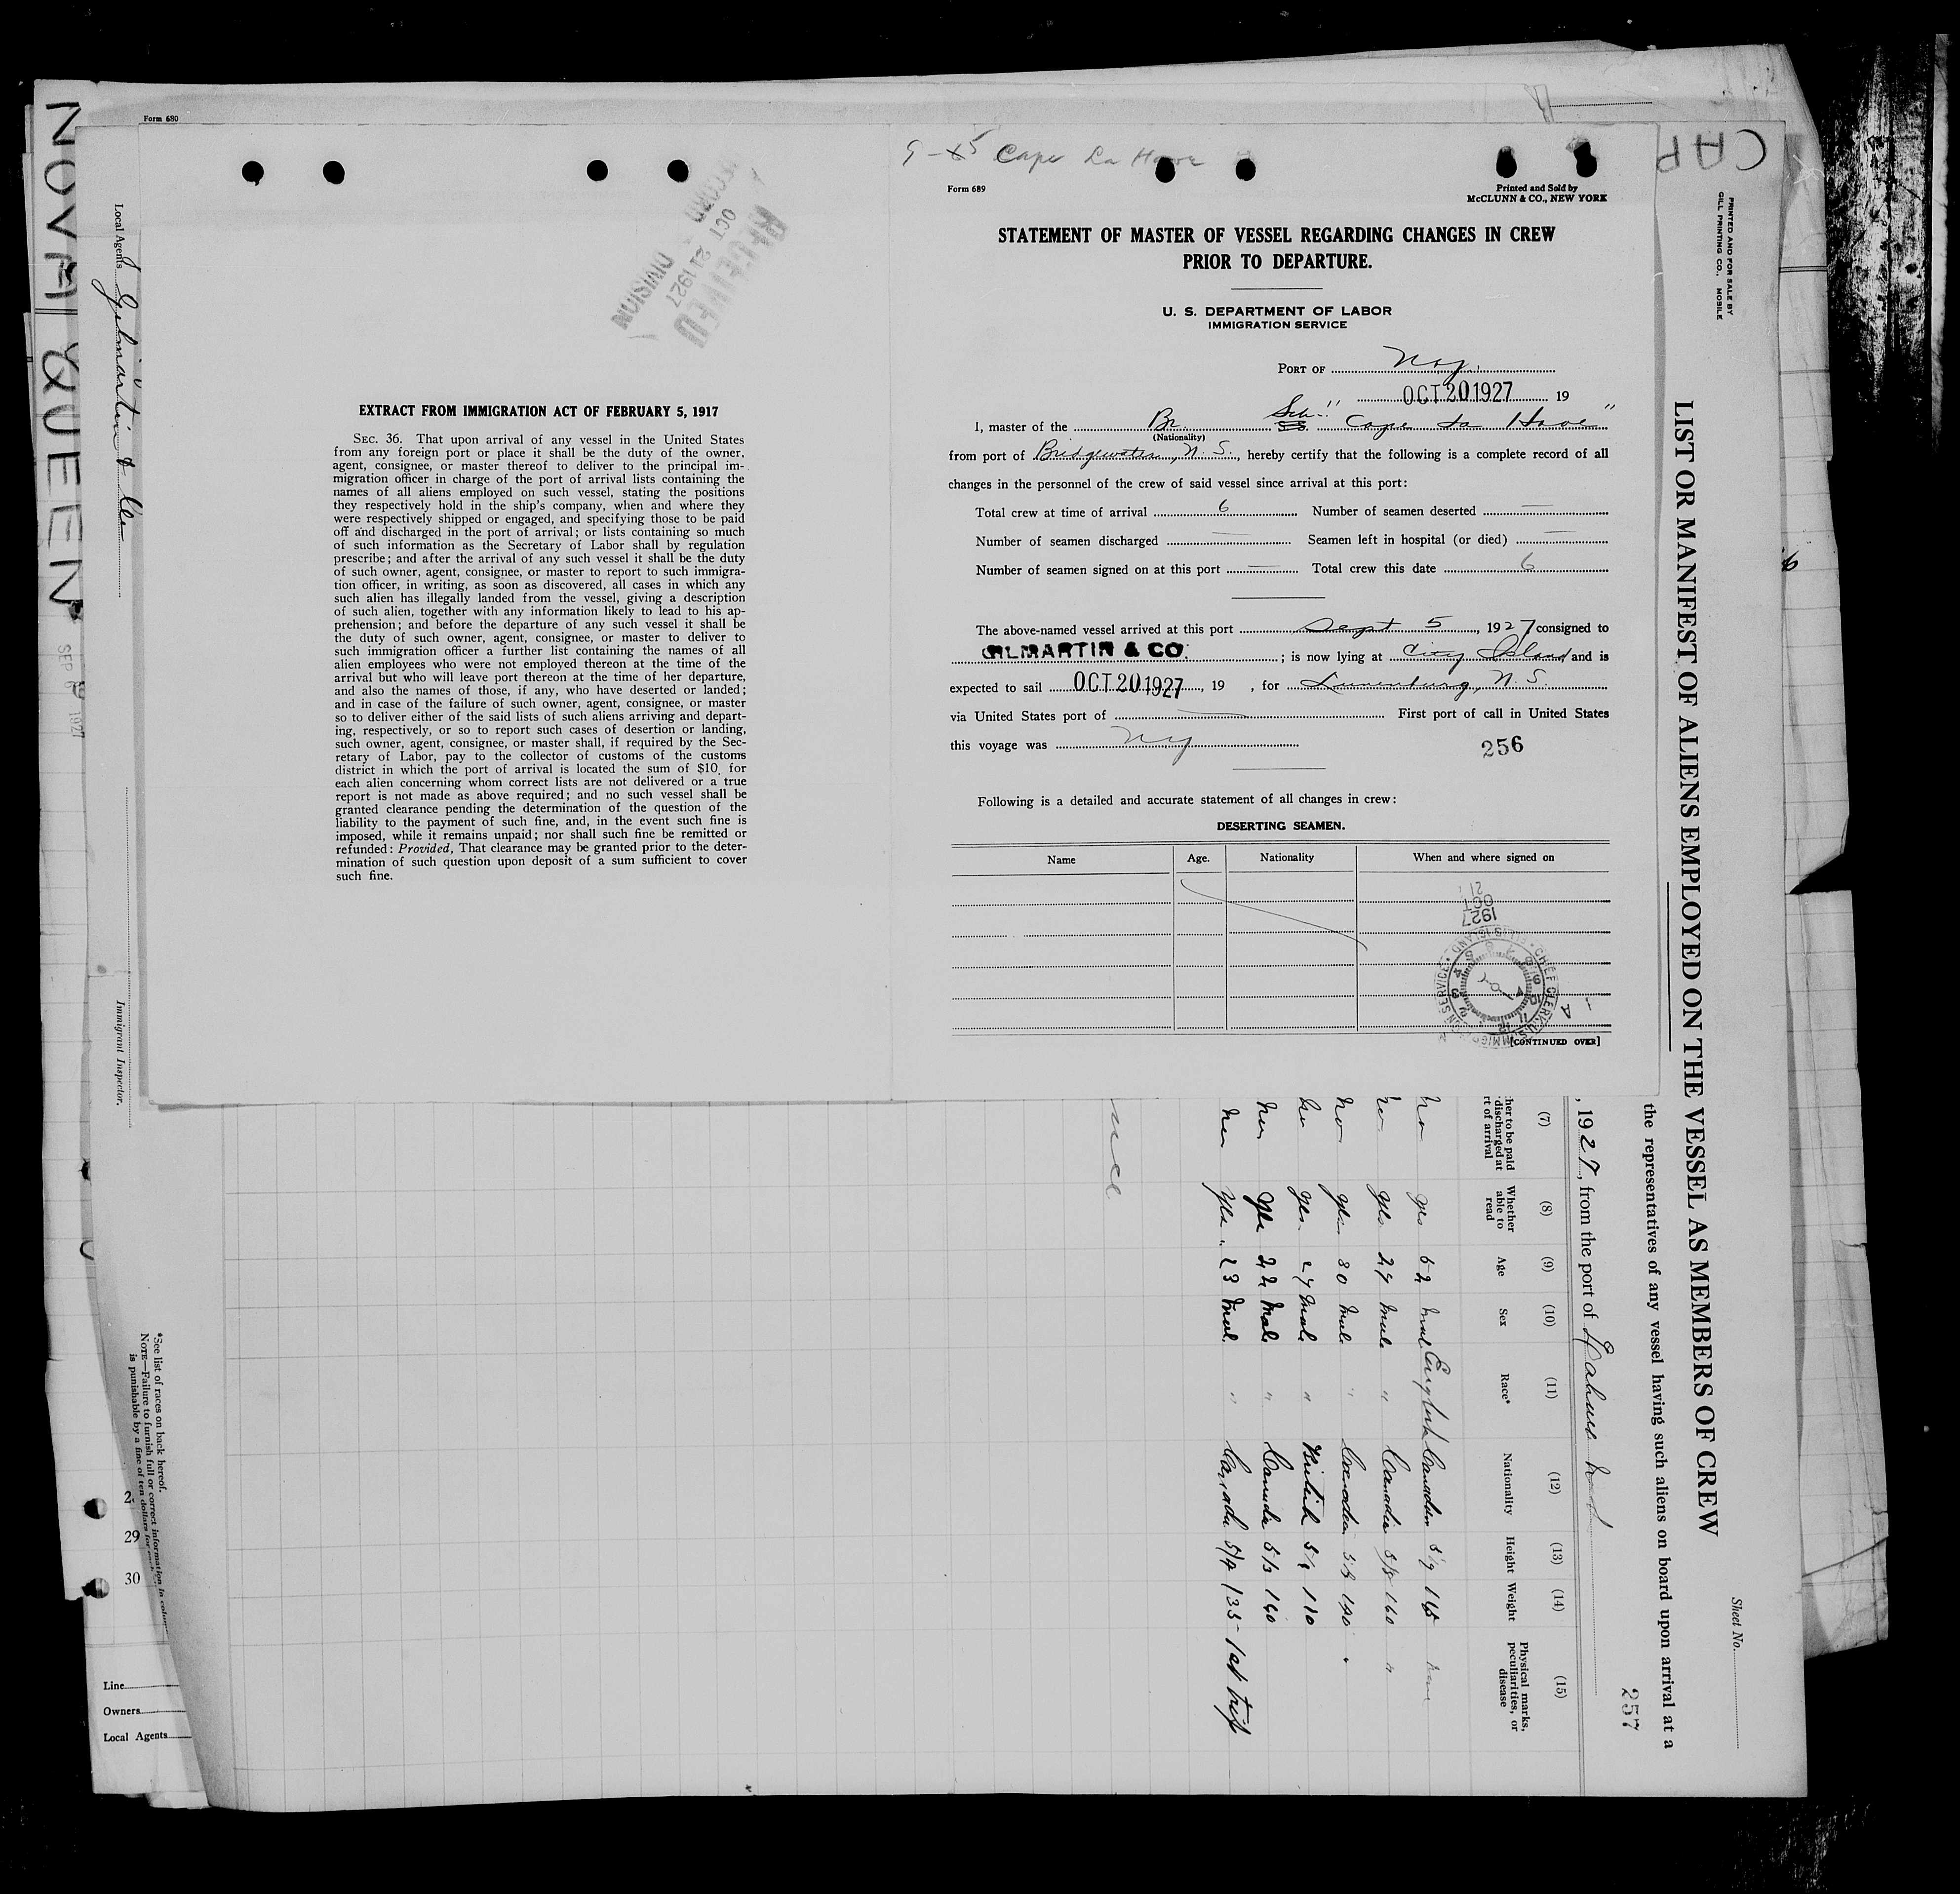 Form 680
Local Agents Gilmartin & Co
NOVA QUEEN
SEP 6 1927
Immigrant Inspector.
RECEIVED
OCT 21 1927
RECORD DIVISION
EXTRACT FROM IMMIGRATION ACT OF FEBRUARY 5, 1917
SEC. 36. That upon arrival of any vessel in the United States
from any foreign port or place it shall be the duty of the owner,
agent, consignee, or master thereof to deliver to the principal im-
migration officer in charge of the port of arrival lists containing the
names of all aliens employed on such vessel, stating the positions
they respectively hold in the ship's company, when and where they
were respectively shipped or engaged, and specifying those to be paid
off and discharged in the port of arrival; or lists containing so much
of such information as the Secretary of Labor shall by regulation
prescribe; and after the arrival of any such vessel it shall be the duty
of such owner, agent, consignee, or master to report to such immigra-
tion officer, in writing, as soon as discovered, all cases in which any
such alien has illegally landed from the vessel, giving a description
of such alien, together with any information likely to lead to his ap-
prehension; and before the departure of any such vessel it shall be
the duty of such owner, agent, consignee, or master to deliver to
such immigration officer a further list containing the names of all
alien employees who were not employed thereon at the time of the
arrival but who will leave port thereon at the time of her departure,
and also the names of those, if any, who have deserted or landed;
and in case of the failure of such owner, agent, consignee, or master
so to deliver either of the said lists of such aliens arriving and depart-
ing, respectively, or so to report such cases of desertion or landing,
such owner, agent, consignee, or master shall, if required by the Sec-
retary of Labor, pay to the collector of customs of the customs
district in which the port of arrival is located the sum of $10 for
each alien concerning whom correct lists are not delivered or a true
report is not made as above required; and no such vessel shall be
granted clearance pending the determination of the question of the
liability to the payment of such fine, and, in the event such fine is
imposed, while it remains unpaid; nor shall such fine be remitted or
refunded: Provided, That clearance may be granted prior to the deter-
mination of such question upon deposit of a sum sufficient to cover
such fine.
Cape La Have
Form 689
Printed and Sold by
McCLUNN & CO., NEW YORK
STATEMENT OF MASTER OF VESSEL REGARDING CHANGES IN CREW
PRIOR TO DEPARTURE.
U. S. DEPARTMENT OF LABOR
IMMIGRATION SERVICE
PORT OF NY.
OCT 20 1927 19
I, master of the Br. Sch. "Cape La Have"
(Nationality)
from port of Bridgewater, N. S., hereby certify that the following is a complete record of all
changes in the personnel of the crew of said vessel since arrival at this port:
Total crew at time of arrival 6 Number of seamen deserted —
Number of seamen discharged — Seamen left in hospital (or died) —
Number of seamen signed on at this port — Total crew this date 6
The above-named vessel arrived at this port Sept 5, 1927 consigned to
GILMARTIN & CO. ; is now lying at City Island and is
expected to sail OCT 20 1927, 19 , for Lunenburg, N. S.
via United States port of — First port of call in United States
this voyage was NY
256
Following is a detailed and accurate statement of all changes in crew:
DESERTING SEAMEN.
Name Age. Nationality When and where signed on
1927
OCT
21
CHIEF CLERK U.S. IMMIGRATION SERVICE ELLIS ISLAND
[CONTINUED OVER]
CAP
PRINTED AND FOR SALE BY
GILL PRINTING CO., MOBILE
LIST OR MANIFEST OF ALIENS EMPLOYED ON THE VESSEL AS MEMBERS OF CREW
Sheet No.
the representatives of any vessel having such aliens on board upon arrival at a
257
, 1927, from the port of
(7) (8) (9) (10) (11) (12) (13) (14) (15)
her to be paid
discharged at
rt of arrival
Whether
able to
read
Age
Sex
Race*
Nationality
Height
Weight
Physical marks,
peculiarities, or
disease
no yes 52 male English Canadian 5/9
no yes 29 male " Canadian 5/8 160 "
no yes 30 male " Canadian 190
no yes 27 male " British 110
yes 22 male " Canada 5/3 160
yes 23 male " Canada 5/4 135 - 1st trip
*See list of races on back hereof.
NOTE—Failure to furnish full or correct information in colum
is punishable by a fine of ten dollars for each
29
30
Line
Owners
Local Agents